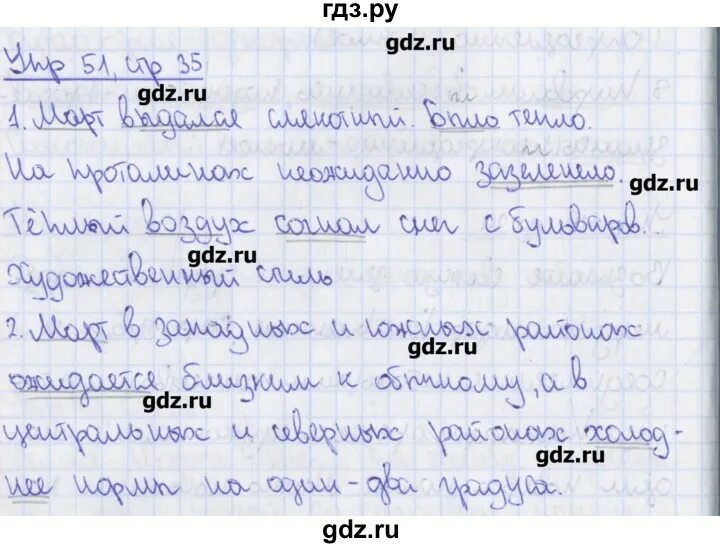 гдз.ру
gdz.ru
Упр 51, стр 35
gdz.ru
1. Март выдался слякотный. Было тепло.
На проталинах неожиданно зазеленело.
gdz.ru
Тёплый воздух согнал снег с бульваров.
gdz.ru
Художественный стиль
2. Март в западных и южных районах
gdz.ru
ожидается близким к обычному, а в
gdz.ru
центральных и северных районах холод-
gdz.ru
нее нормы на один-два градуса.
gdz.ru